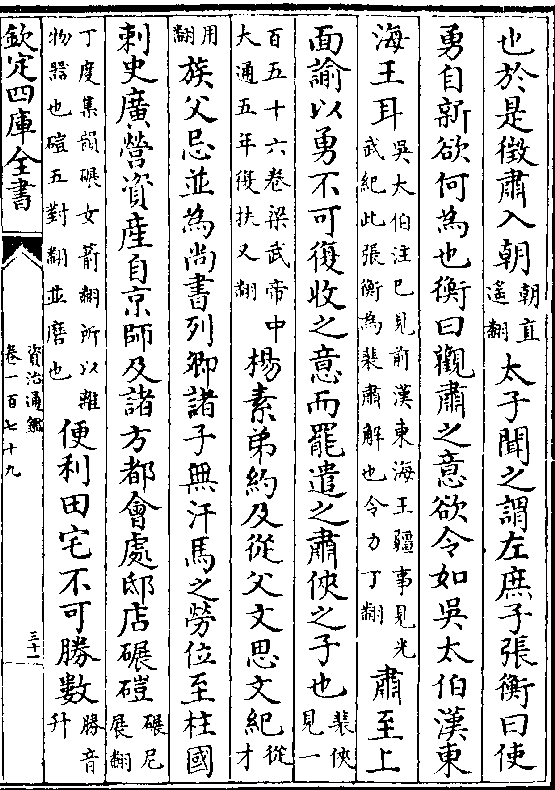 也於是徵肅入朝朝直遥翻太子聞之謂左庶子張衡曰使
勇自新欲何為也衡曰觀肅之意欲令如吳太伯漢東
海王耳吳大伯注已見前漢東海王疆事見光武紀此張衡為裴肅解也令力丁翻肅至上
面諭以勇不可復收之意而罷遣之肅俠之子也裴俠見一
百五十六卷梁武帝中大通五年復扶又翻楊素弟約及從父文思文紀從才
用翻族父忌並為尚書列卿諸子無汗馬之勞位至柱國
刺史廣營資産自京師及諸方都會處邸店碾磑碾尼展翻
丁度集韻碾女箭翻所以雜物器也磑五對翻並磨也便利田宅不可勝數勝音升
欽定四庫全書
資治通鑑
卷一百七十九
三十一